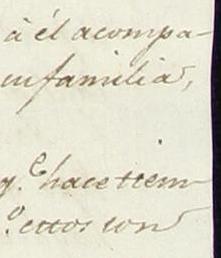 à él acompa-
su familia,
q.e hace tiem-
.o estos son